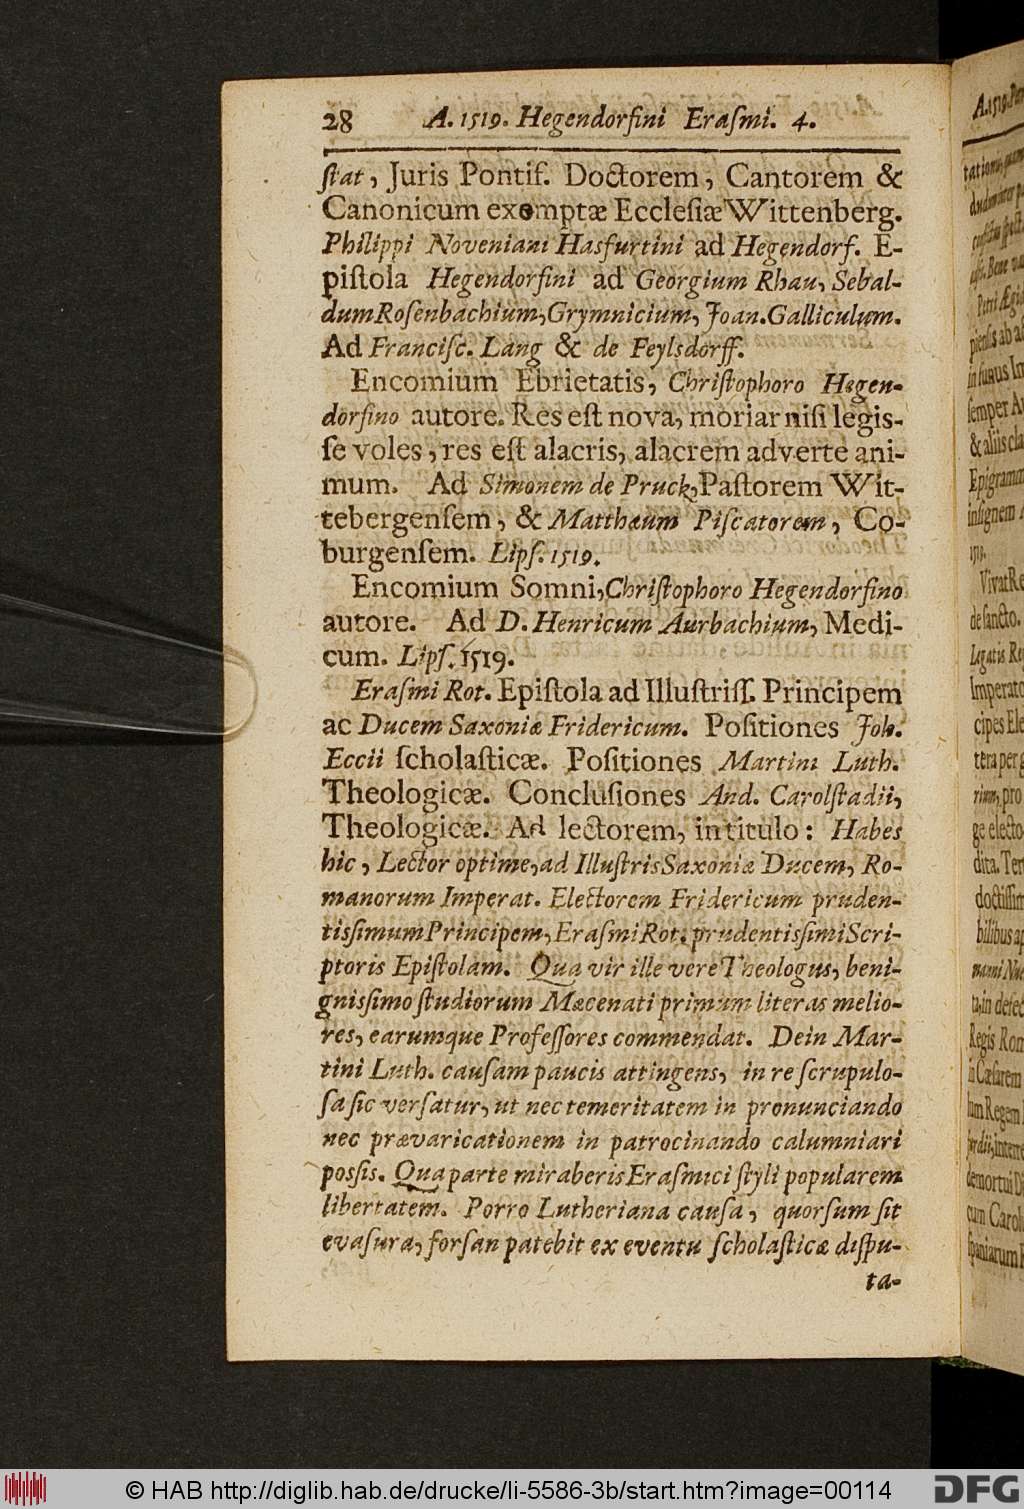 28 A. 1519. Hegendorfini Eraſmi. 4.
ſtat, Juris Pontif. Doctorem, Cantorem &
Canonicum exemptæ Eccleſiæ Wittenberg.
Philippi Noveniani Hasfurtini ad Hegendorf. E-
piſtola Hegendorfini ad Georgium Rhau, Sebal-
dum Roſenbachium, Grymnicium, Joan. Galliculum.
Ad Franciſc. Lang & de Feylsdorff.
Encomium Ebrietatis, Chriſtophoro Hegen-
dorfino autore. Res eſt nova, moriar niſi legis-
ſe voles, res eſt alacris, alacrem adverte ani-
mum. Ad Simonem de Pruck, Paſtorem Wit-
tebergenſem, & Matthæum Piſcatorem, Co-
burgenſem. Lipſ. 1519.
Encomium Somni, Chriſtophoro Hegendorfino
autore. Ad D. Henricum Aurbachium, Medi-
cum. Lipſ. 1519.
Eraſmi Rot. Epiſtola ad Illuſtriſſ. Principem
ac Ducem Saxoniæ Fridericum. Poſitiones Joh.
Eccii ſcholaſticæ. Poſitiones Martini Luth.
Theologicæ. Concluſiones And. Carolſtadii,
Theologicæ. Ad lectorem, in titulo: Habes
hic, Lector optime, ad Illuſtris Saxoniæ Ducem, Ro-
manorum Imperat. Electorem Fridericum pruden-
tisſimum Principem, Eraſmi Rot. prudentisſimi Scri-
ptoris Epiſtolam. Qua vir ille vere Theologus, beni-
gnisſimo ſtudiorum Mæcenati primum literas melio-
res, earumque Profeſſores commendat. Dein Mar-
tini Luth. cauſam paucis attingens, in re ſcrupulo-
ſa ſic verſatur, ut nec temeritatem in pronunciando
nec prævaricationem in patrocinando calumniari
posſis. Qua parte miraberis Eraſmici ſtyli popularem
libertatem. Porro Lutheriana cauſa, quorſum ſit
evaſura, forſan patebit ex eventu ſcholaſticæ diſpu-
ta-
A. 1519.
de ſancto.
Imperato
cipes Ele
tera per g
rium, pro
ge electo
dita. Ter
doctiſſim
bilibus ap
Regis Rom
© HAB http://diglib.hab.de/drucke/li-5586-3b/start.htm?image=00114
DFG